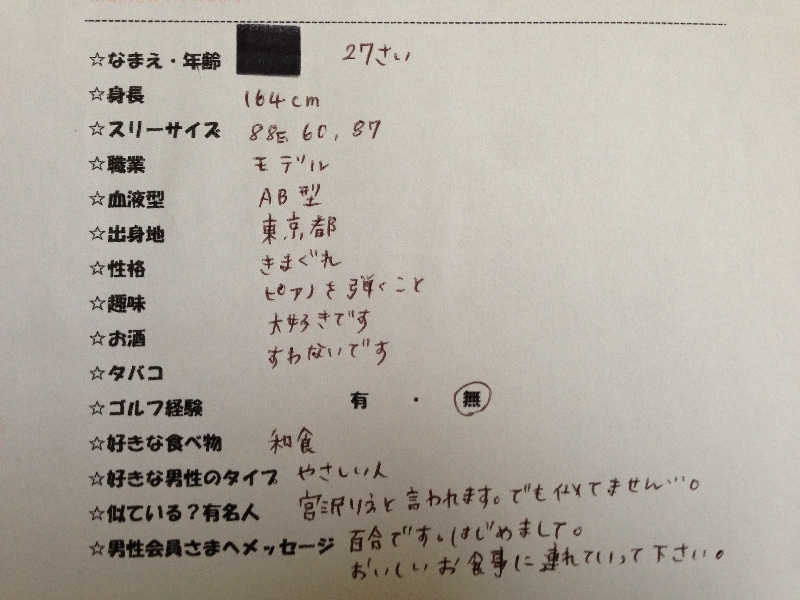 ☆なまえ・年齢 27さい
☆身長 164cm
☆スリーサイズ 88E, 60, 87
☆職業 モデル
☆血液型 AB型
☆出身地 東京都
☆性格 きまぐれ
☆趣味 ピアノを弾くこと
☆お酒 大好きです
☆タバコ すわないです
☆ゴルフ経験 有 ・ 無
☆好きな食べ物 和食
☆好きな男性のタイプ やさしい人
☆似ている?有名人 宮沢りえと言われます。でも似てません…。
☆男性会員さまへメッセージ 百合です。はじめまして。
おいしいお食事に連れていって下さい。